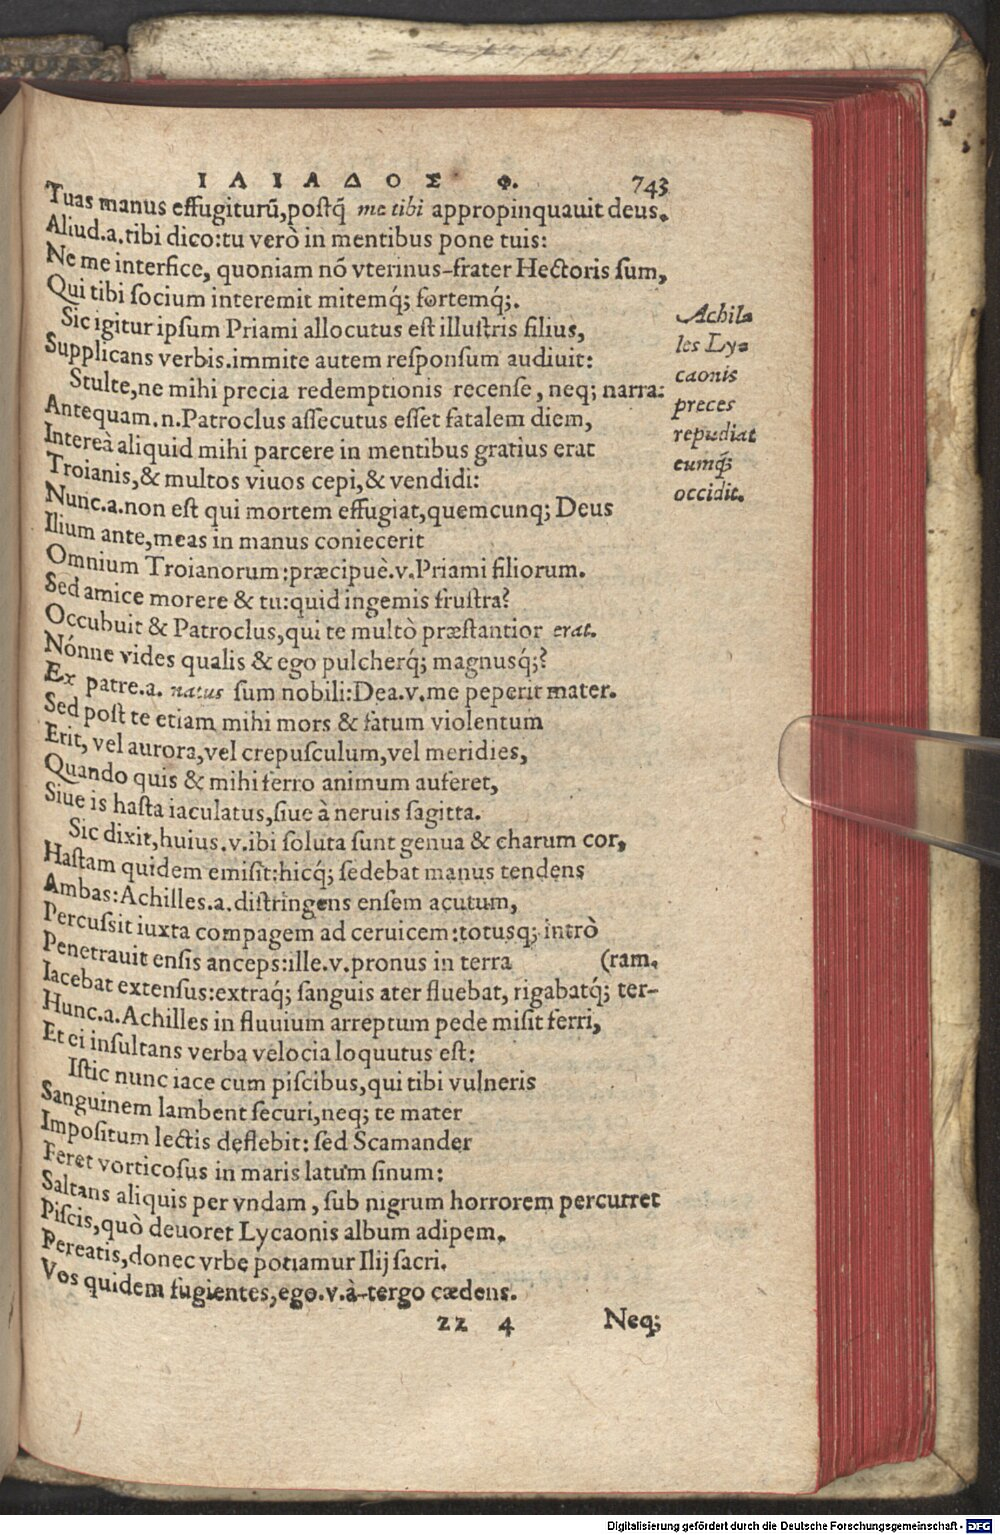 ΙΛΙΑΔΟΣ Φ. 743
Tuas manus effugiturũ,postq̃ me tibi appropinquauit deus.
Aliud.a.tibi dico:tu verò in mentibus pone tuis:
Ne me interfice, quoniam nõ vterinus-frater Hectoris sum,
Qui tibi socium interemit mitemq́; fortemq́;.
Sic igitur ipsum Priami allocutus est illustris filius,
Supplicans verbis.immite autem responsum audiuit:
Stulte,ne mihi precia redemptionis recense, neq; narra:
Antequam.n.Patroclus assecutus esset fatalem diem,
Intereà aliquid mihi parcere in mentibus gratius erat
Troianis,& multos viuos cepi,& vendidi:
Nunc.a.non est qui mortem effugiat,quemcunq; Deus
Ilium ante,meas in manus coniecerit
Omnium Troianorum:præcipuè.v.Priami filiorum.
Sed amice morere & tu:quid ingemis frustra?
Occubuit & Patroclus,qui te multò præstantior erat.
Nónne vides qualis & ego pulcherq́; magnusq́;?
Ex patre.a. natus sum nobili:Dea.v.me peperit mater.
Sed post te etiam mihi mors & fatum violentum
Erit, vel aurora,vel crepusculum,vel meridies,
Quando quis & mihi ferro animum auferet,
Siue is hasta iaculatus,siue à neruis sagitta.
Sic dixit,huius.v.ibi soluta sunt genua & charum cor,
Hastam quidem emisit:hicq́; sedebat manus tendens
Ambas:Achilles.a.distringens ensem acutum,
Percussit iuxta compagem ad ceruicem:totusq; intrò
Penetrauit ensis anceps:ille.v.pronus in terra (ram.
Iacebat extensus:extraq́; sanguis ater fluebat, rigabatq́; ter-
Hunc.a.Achilles in fluuium arreptum pede misit ferri,
Et ei insultans verba velocia loquutus est:
Istic nunc iace cum piscibus,qui tibi vulneris
Sanguinem lambent securi,neq; te mater
Impositum lectis deflebit: sed Scamander
Feret vorticosus in maris latum sinum:
Saltans aliquis per vndam, sub nigrum horrorem percurret
Piscis,quò deuoret Lycaonis album adipem.
Pereatis,donec vrbe potiamur Ilij sacri.
Vos quidem fugientes,ego.v.à-tergo cædens.
zz 4 Neq;
Achil=
les Ly=
caonis
preces
repudiat
eumq́;
occidit.
Digitalisierung gefördert durch die Deutsche Forschungsgemeinschaft - DFG